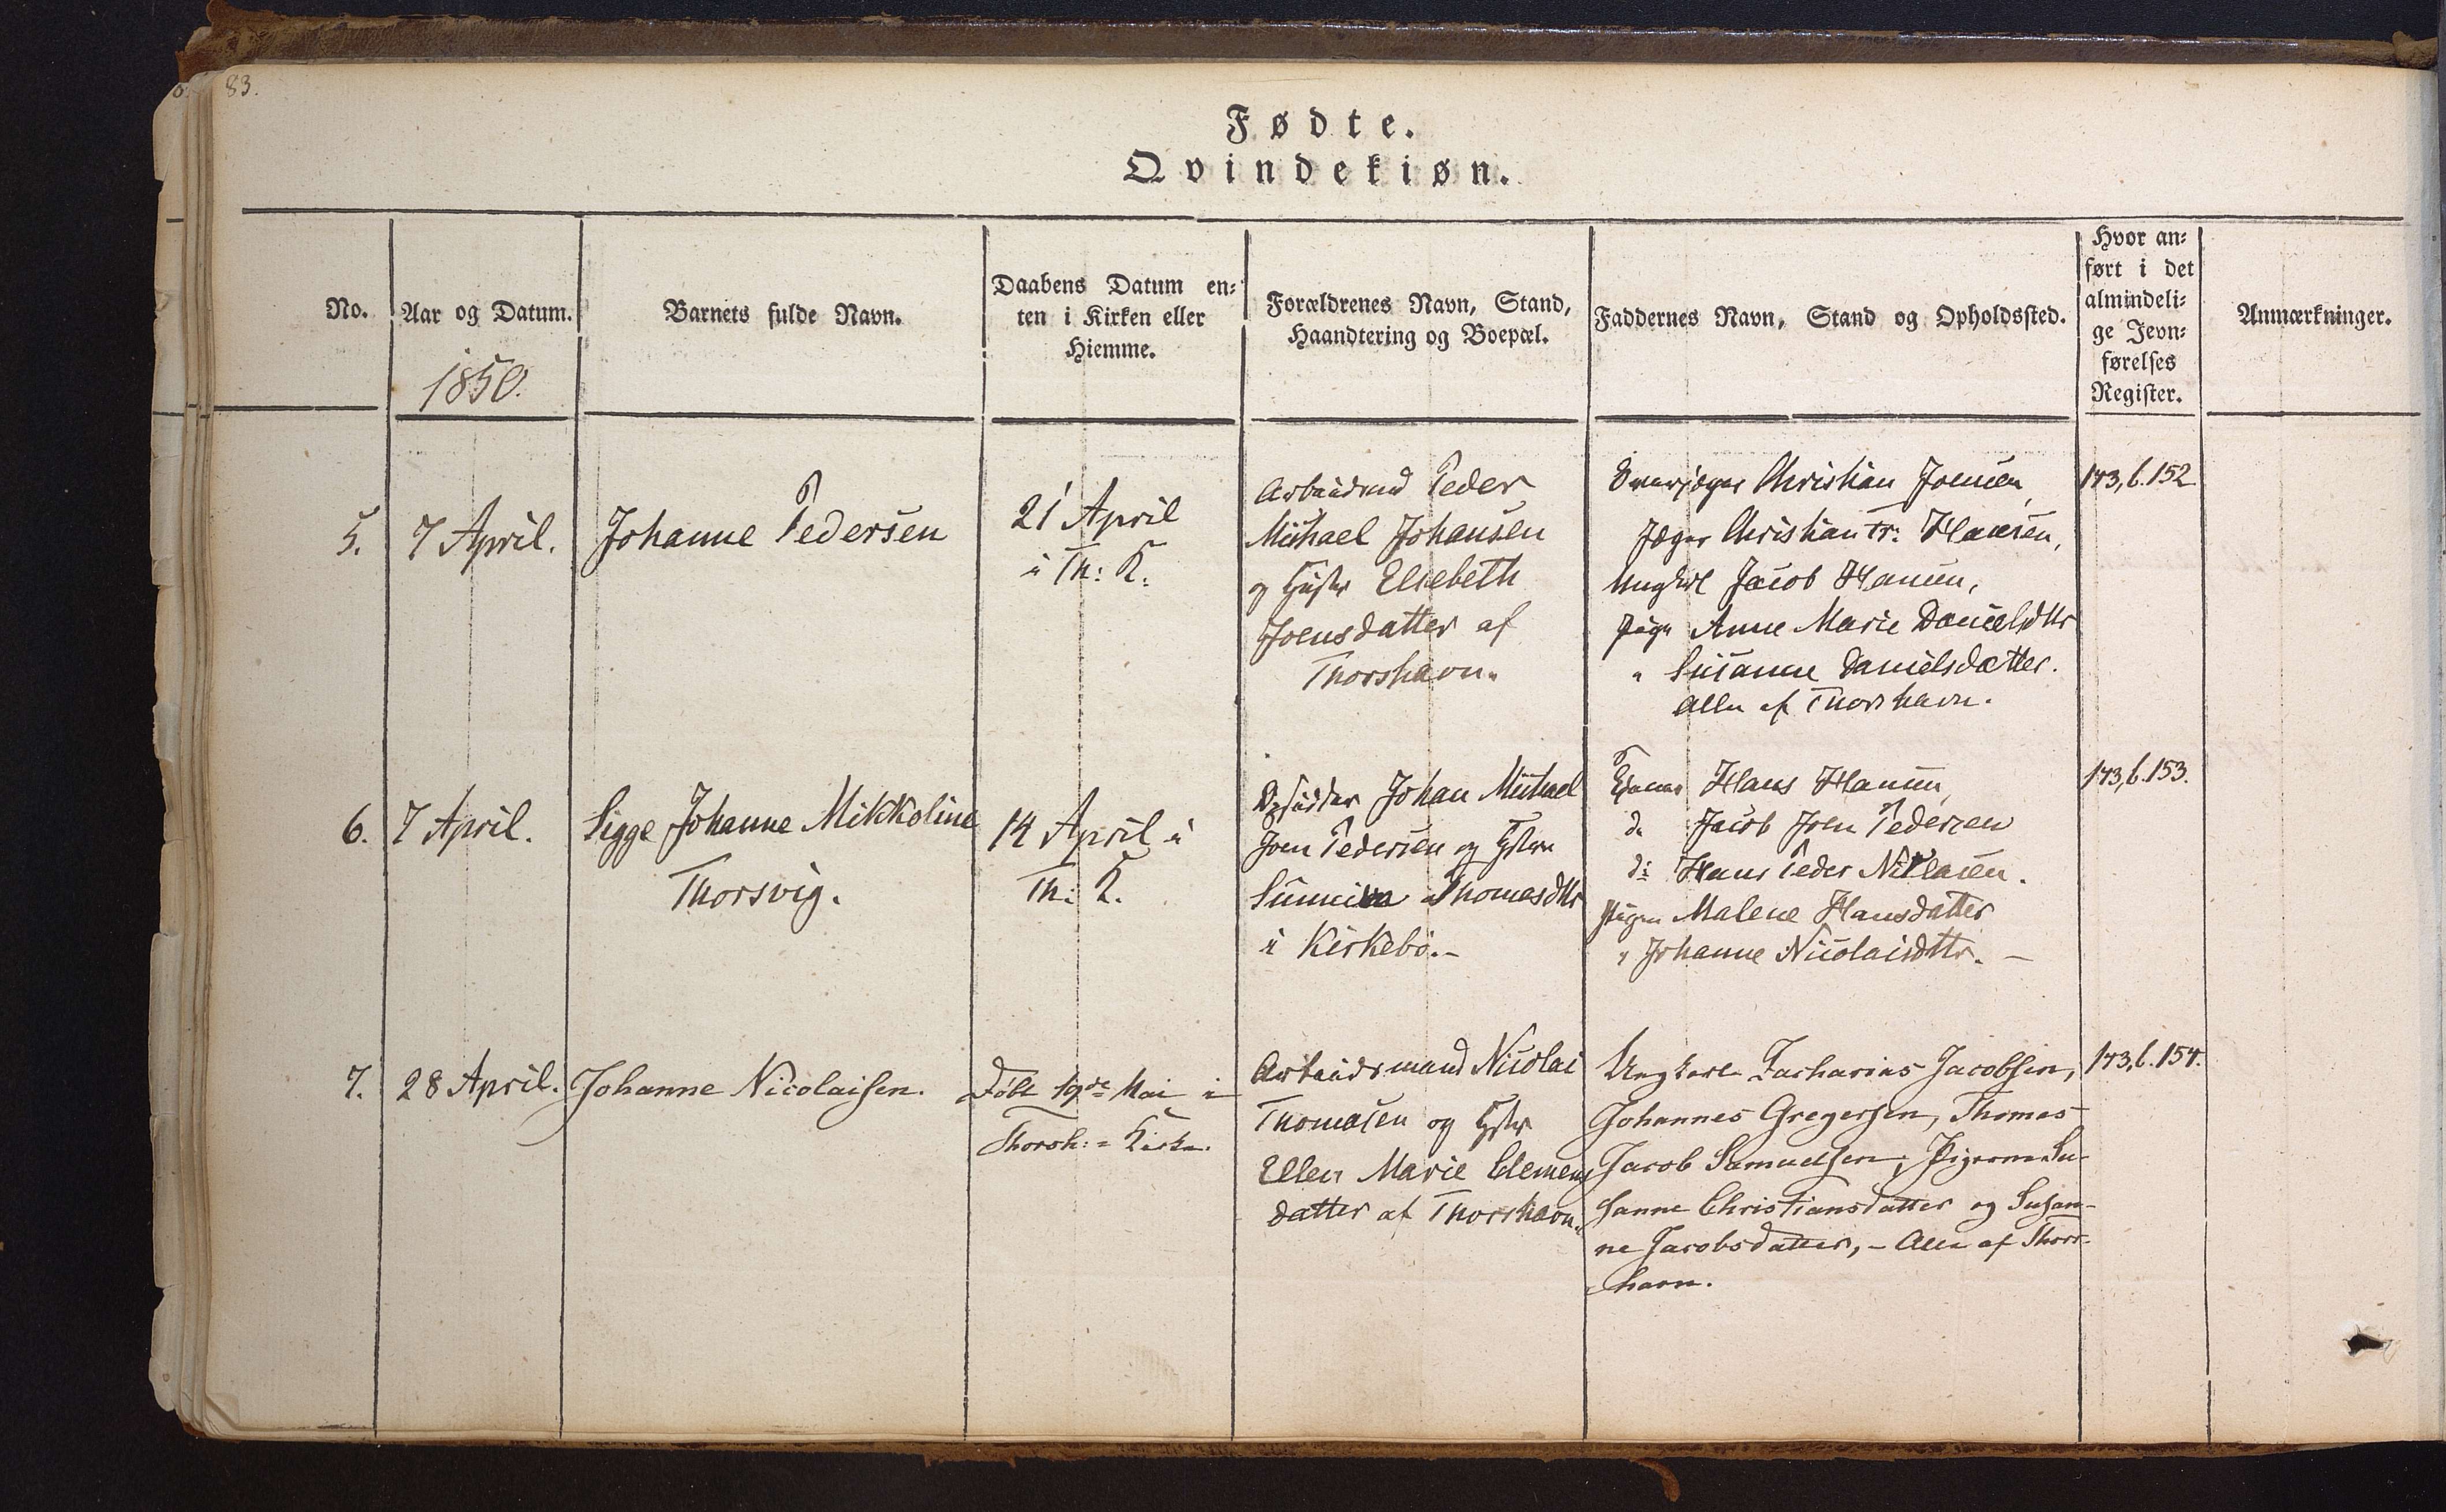 83.
Fødte.
Qvindekiøn.
No.
Aar og Datum.
1850.
Barnets fulde Navn.
Daabens Datum en-
ten i Kirken eller
Hiemme.
Forældrenes Navn, Stand,
Haandtering og Boepæl.
Faddernes Navn, Stand og Opholdssted.
Hvor an-
ført i det
almindeli-
ge Jevn-
førelses
Register.
Anmærkninger.
5.
7 April.
Johanne Pedersen
21 April
i Th: K.
Arbeidsmd Peder
Michael Johansen
og Hustr Elsebeth
Joensdatter af
Thorshavn.
Christian Joensen,
Jæger Christian Fr: Hansen,
Ungkrl Jacob Hansen,
Pige Anne Marie Danielsdttr
" Susanne Danielsdatter.
Alle af Thorshavn.
173, b. 152
6.
7 April.
Sigge Johanne Mikkoline
Thorsvig.
14 April i
Th: K.
Opsidder Johan Michael
Joen Pedersen og Hstru
Sunniva Thomasdttr
i Kirkebø.-
Hans Hansen,
do Jacob Joen Pedersen
do Hans Peder Niclasen.
Pigen Malene Hansdatter
" Johanne Nicolaisdttr. -
173, b. 153.
7.
28 April.
Johanne Nicolaisen.
Døbt 19de Mai i
Thorsh:= Kirke.
Arbeidsmand Nicolai
Thomasen og Hstr
Ellen Marie Clemens
datter af Thorshavn.
Ungkarl Zacharias Jacobsen,
Johannes Gregersen, Thomas
Jacob Samuelsen, Pigerne Su-
sanne Christiansdatter og Susan-
ne Jacobsdatter, - Alle af Thors-
havn.
173, b. 154.